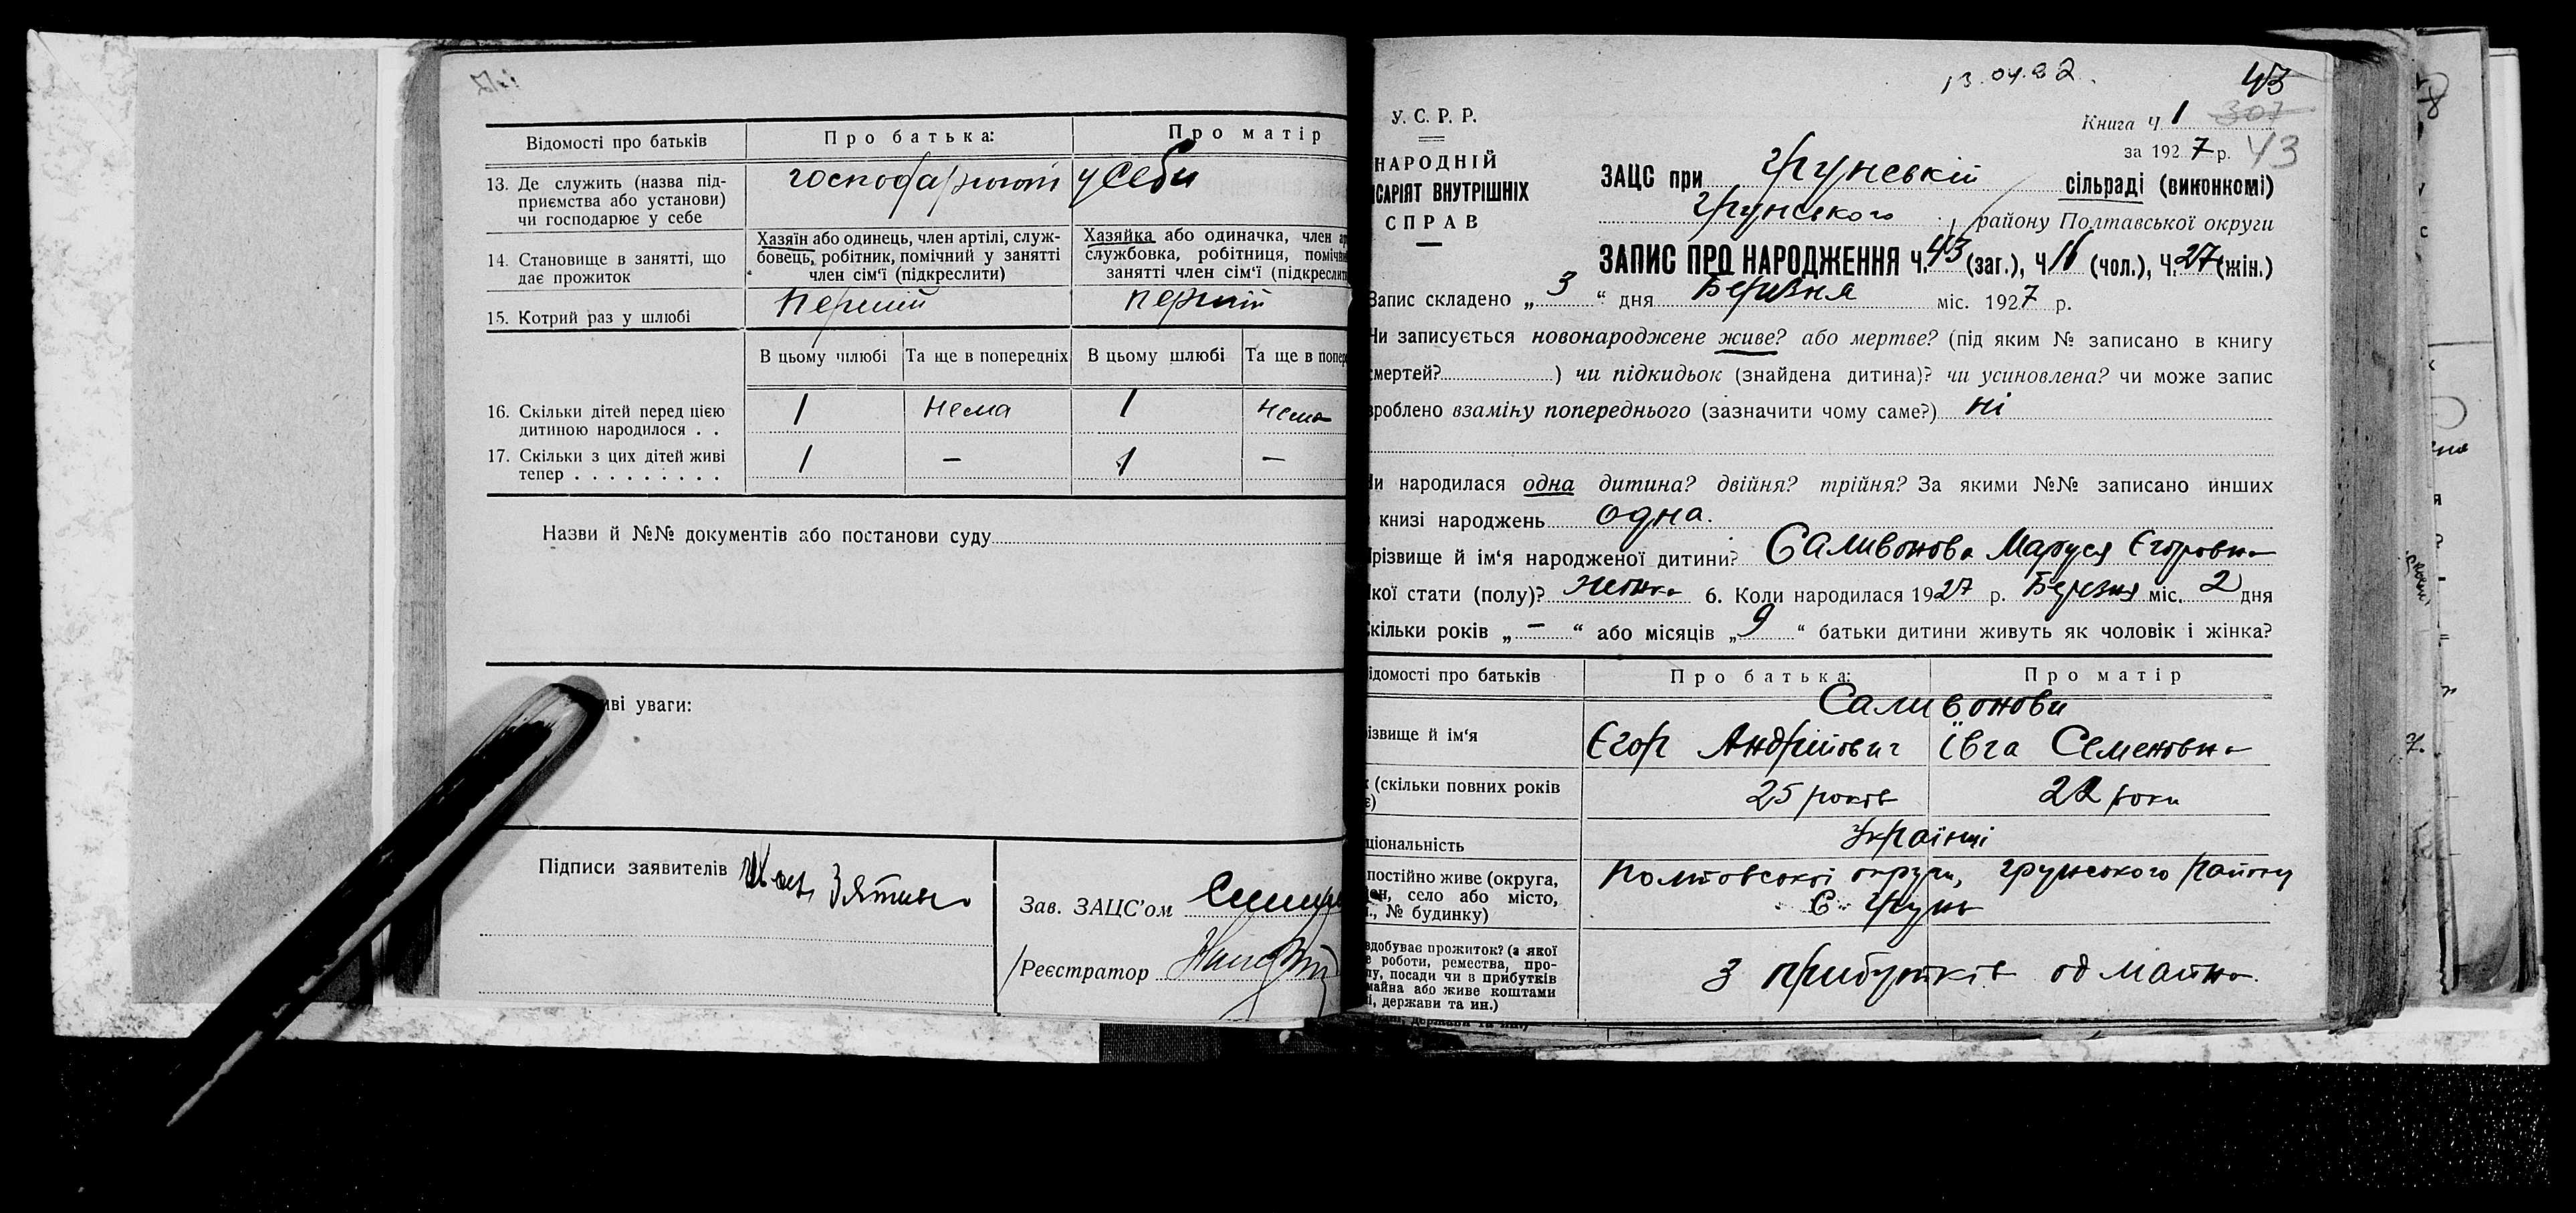 Відомості про батьків
Про батька:
Про матір
13. Де служить (назва під-
приємства або установи)
чи господарює у себе
господарюют у себи
14. Становище в занятті, що
дає прожиток
Хазяїн або одинець, член артілі, служ-
бовець, робітник, помічний у занятті
член сім'ї (підкреслити)
Хазяйка або одиначка, член
службовка, робітниця,
занятті член сім'ї
15. Котрий раз у шлюбі
перший
перший
В цьому шлюбі
Та ще в попередніх
В цьому шлюбі
Та ще в
16. Скільки дітей перед цією
дитиною народилося . .
1
нема
1
нема
17. Скільки з цих дітей живі
тепер . . . . . . . . .
1
–
1
–
Назви й №№ документів або постанови суду
уваги:
Підписи заявителів
Зав. ЗАЦС'ом
Реєстратор
43
Книга Ч. 1 307
за 1927 р. 43
У. С. Р. Р.
НАРОДНІЙ
ВНУТРІШНІХ
СПРАВ
ЗАЦС при Грунській сільраді (виконкомі)
Грунського району Полтавської округи
ЗАПИС ПРО НАРОДЖЕННЯ Ч. 43 (заг.), Ч. 16 (чол.), Ч. 27 (жін.)
Запис складено „ 3 “ дня Березня міс. 1927 р.
Чи записується новонароджене живе? або мертве? (під яким № записано в книгу
смертей? ) чи підкидьок (знайдена дитина)? чи усиновлена? чи може запис
зроблено взаміну попереднього (зазначити чому саме?) ні
Чи народилася одна дитина? двійня? трійня? За якими №№ записано инших
книзі народжень одна.
Прізвище й ім'я народженої дитини? Саливонова Маруся Єгоровна
Якої стати (полу)? жінка 6. Коли народилася 1927 р. Березня міс. 2 дня
Скільки років „ – “ або місяців „ 9 “ батьки дитини живуть як чоловік і жінка?
Відомості про батьків
Про батька:
Про матір
Саливонови
Прізвище й ім'я
Єгор Андрійович
Ївга Семеновна
(скільки повних років
25 років
22 роки
національність
Українці
постійно живе (округа,
село або місто,
№ будинку)
Полтовської округи, грунського району
С. Грунь
здобуває прожиток? (з якої
роботи, ремества, про-
посади чи з прибутків
майна або живе коштами
держави та ин.)
З прибутків од майна